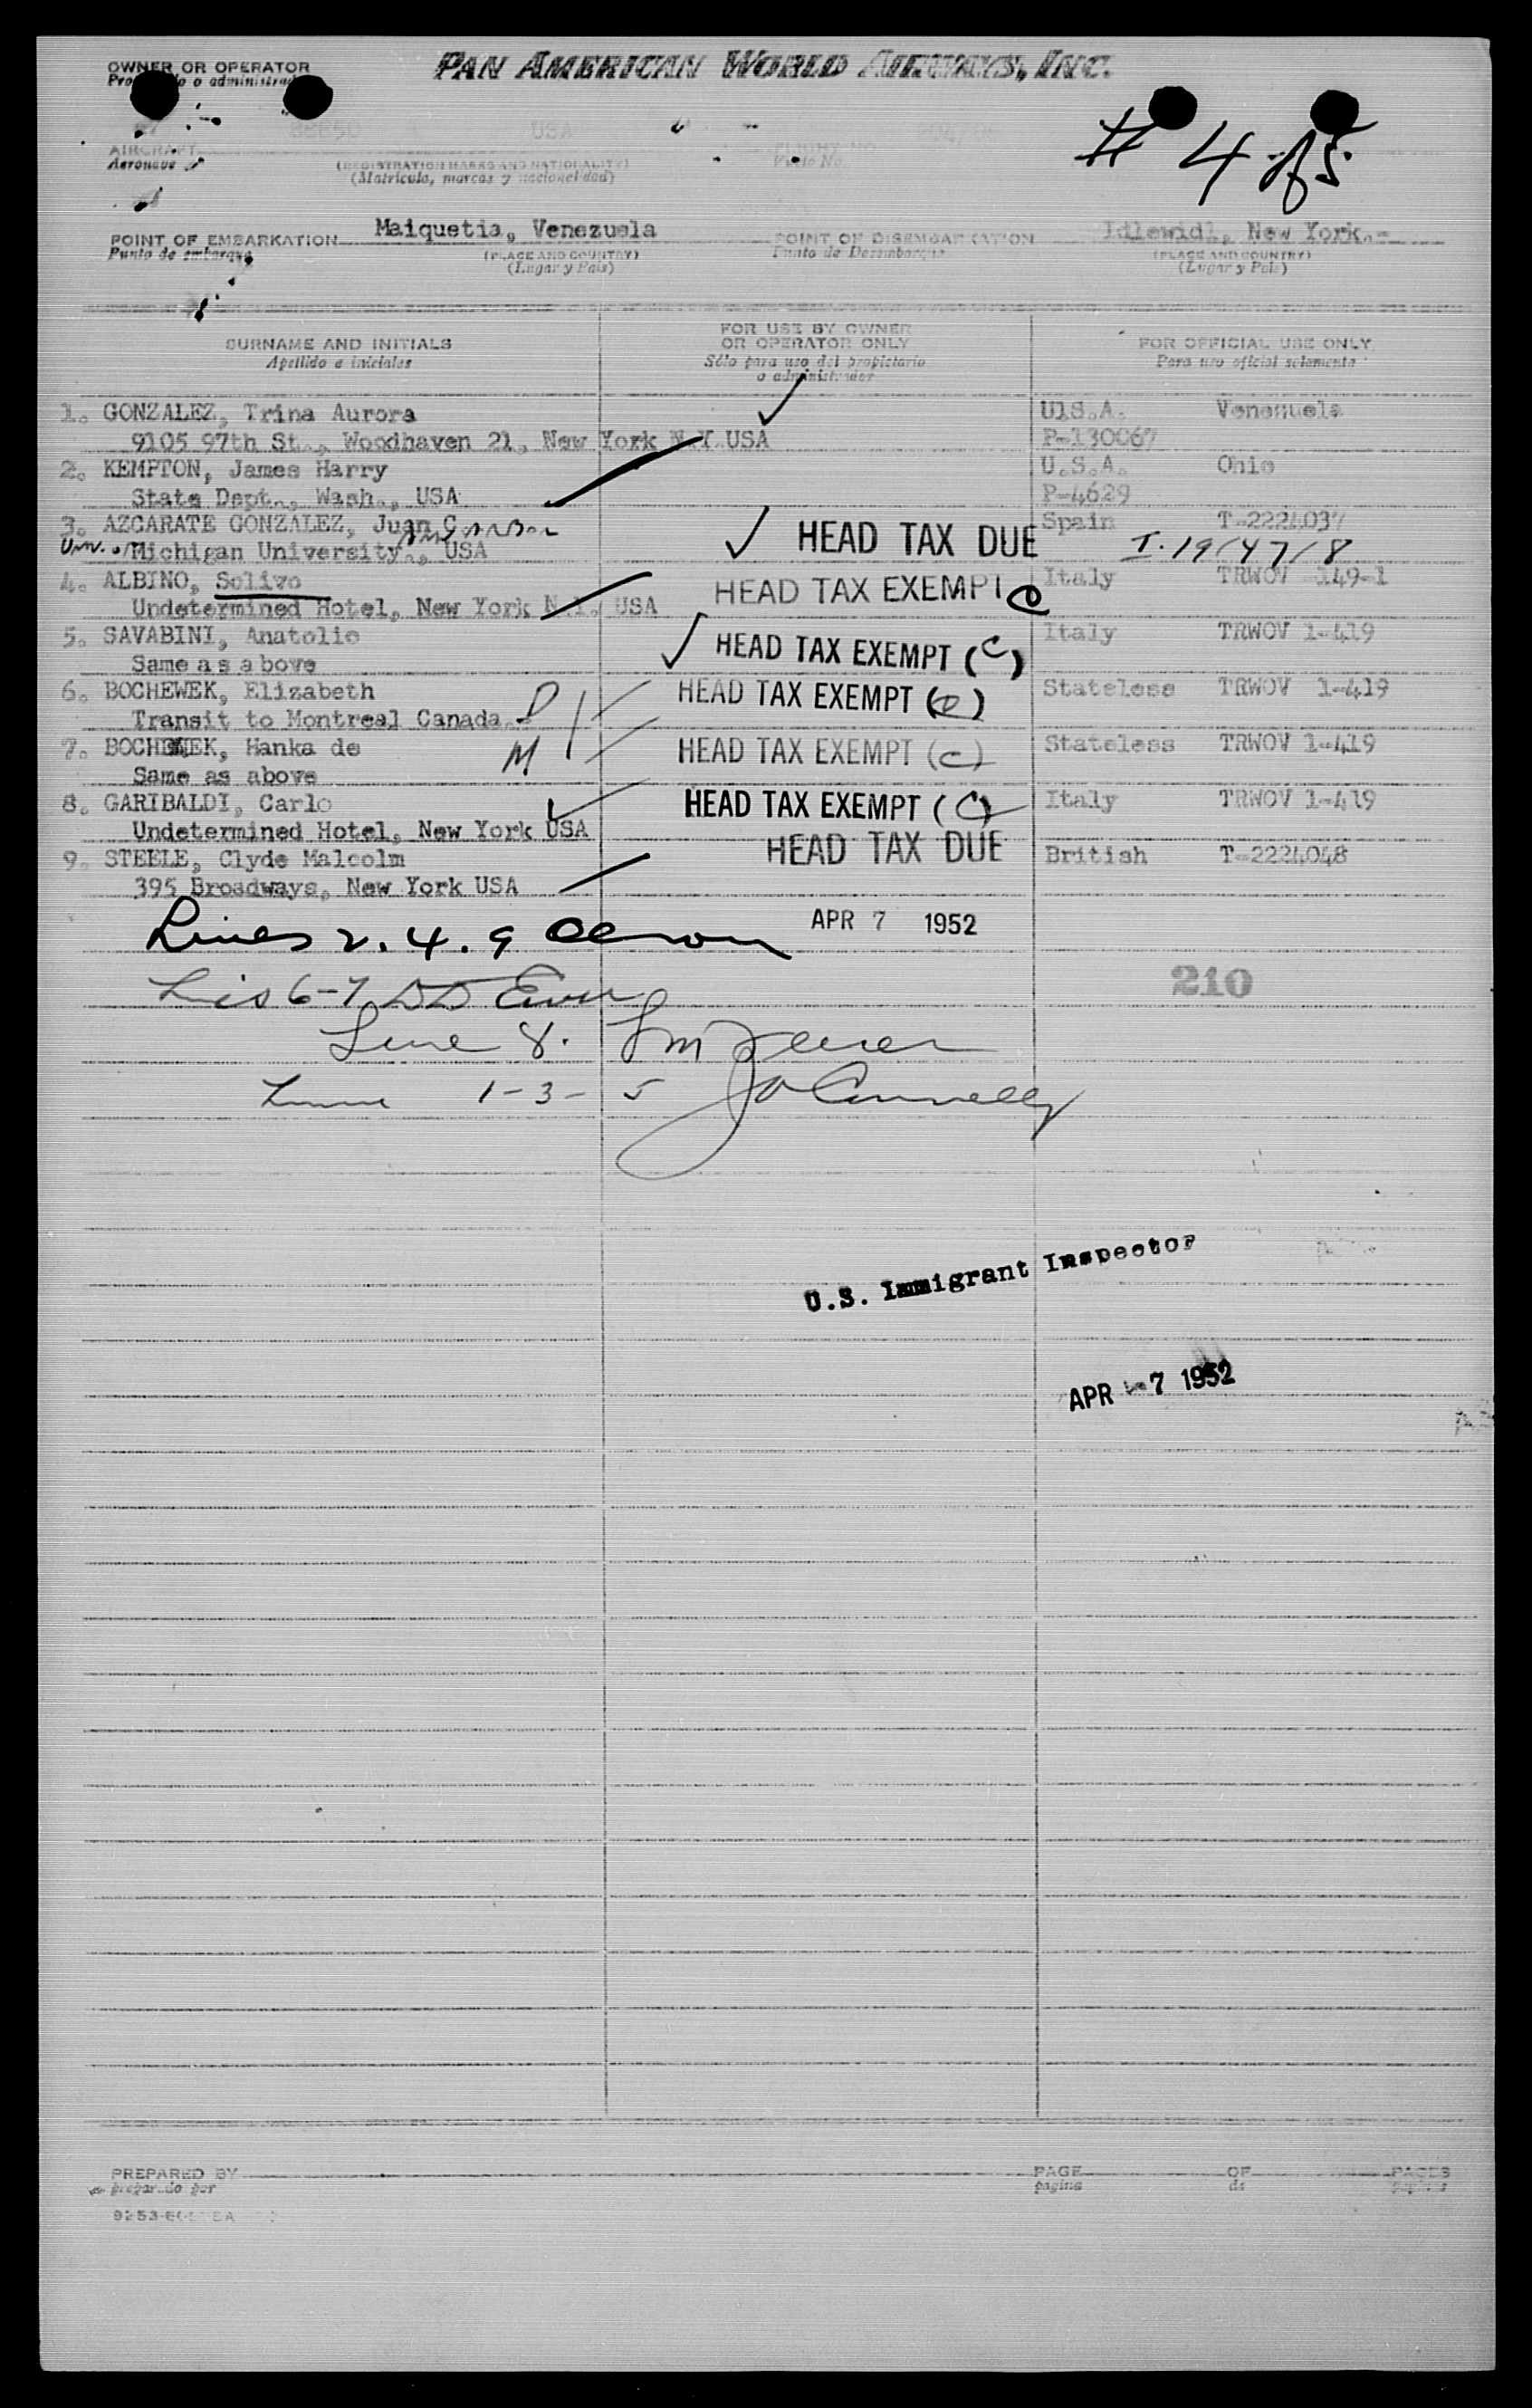 PAN AMERICAN WORLD AIRWAYS, INC.
OWNER OR OPERATOR
o administrador
# 4 of 5
88850 USA
AIRCRAFT
Aeronave
(REGISTRATION MARKS AND NATIONALITY)
(Matricula, marcas y nacionalidad)
FLIGHT NO.
Vuelo No.
POINT OF EMBARKATION Maiquetia, Venezuela
Punto de embarque
(PLACE AND COUNTRY)
(Lugar y País)
POINT OF DISEMBARKATION Idlewidl, New York.-
Punto de Desembarque
(PLACE AND COUNTRY)
(Lugar y País)
SURNAME AND INITIALS
Apellido e iniciales
FOR USE BY OWNER
OR OPERATOR ONLY
Sólo para uso del propietario
o administrador
FOR OFFICIAL USE ONLY
Para uso oficial solamente
1. GONZALEZ, Trina Aurora U.S.A. Venezuela
9105 97th St., Woodhaven 21, New York N.Y. USA P-130067
2. KEMPTON, James Harry U.S.A. Ohio
State Dept., Wash., USA P-4629
3. AZCARATE GONZALEZ, Juan C HEAD TAX DUE Spain T-2224037
Univ. of Michigan University, Ann Arbor, USA I-19/47/8
4. ALBINO, Solivo HEAD TAX EXEMPT C Italy TRWOV 149-1
Undetermined Hotel, New York N.Y. USA
5. SAVABINI, Anatolio HEAD TAX EXEMPT (C) Italy TRWOV 1-419
Same as above
6. BOCHEWEK, Elizabeth D HEAD TAX EXEMPT (C) Stateless TRWOV 1-419
Transit to Montreal Canada.
7. BOCHEWEK, Hanka de M HEAD TAX EXEMPT (C) Stateless TRWOV 1-419
Same as above
8. GARIBALDI, Carlo HEAD TAX EXEMPT (C) Italy TRWOV 1-419
Undetermined Hotel, New York USA
9. STEELE, Clyde Malcolm HEAD TAX DUE British T-2224048
395 Broadways, New York USA
Lines 2. 4. 9
APR 7 1952
210
6-7
Line 8.
Line 1-3-5 Connelly
U.S. Immigrant Inspector
APR -7 1952
PREPARED BY
preparado por
PAGE OF PAGES
pagina de